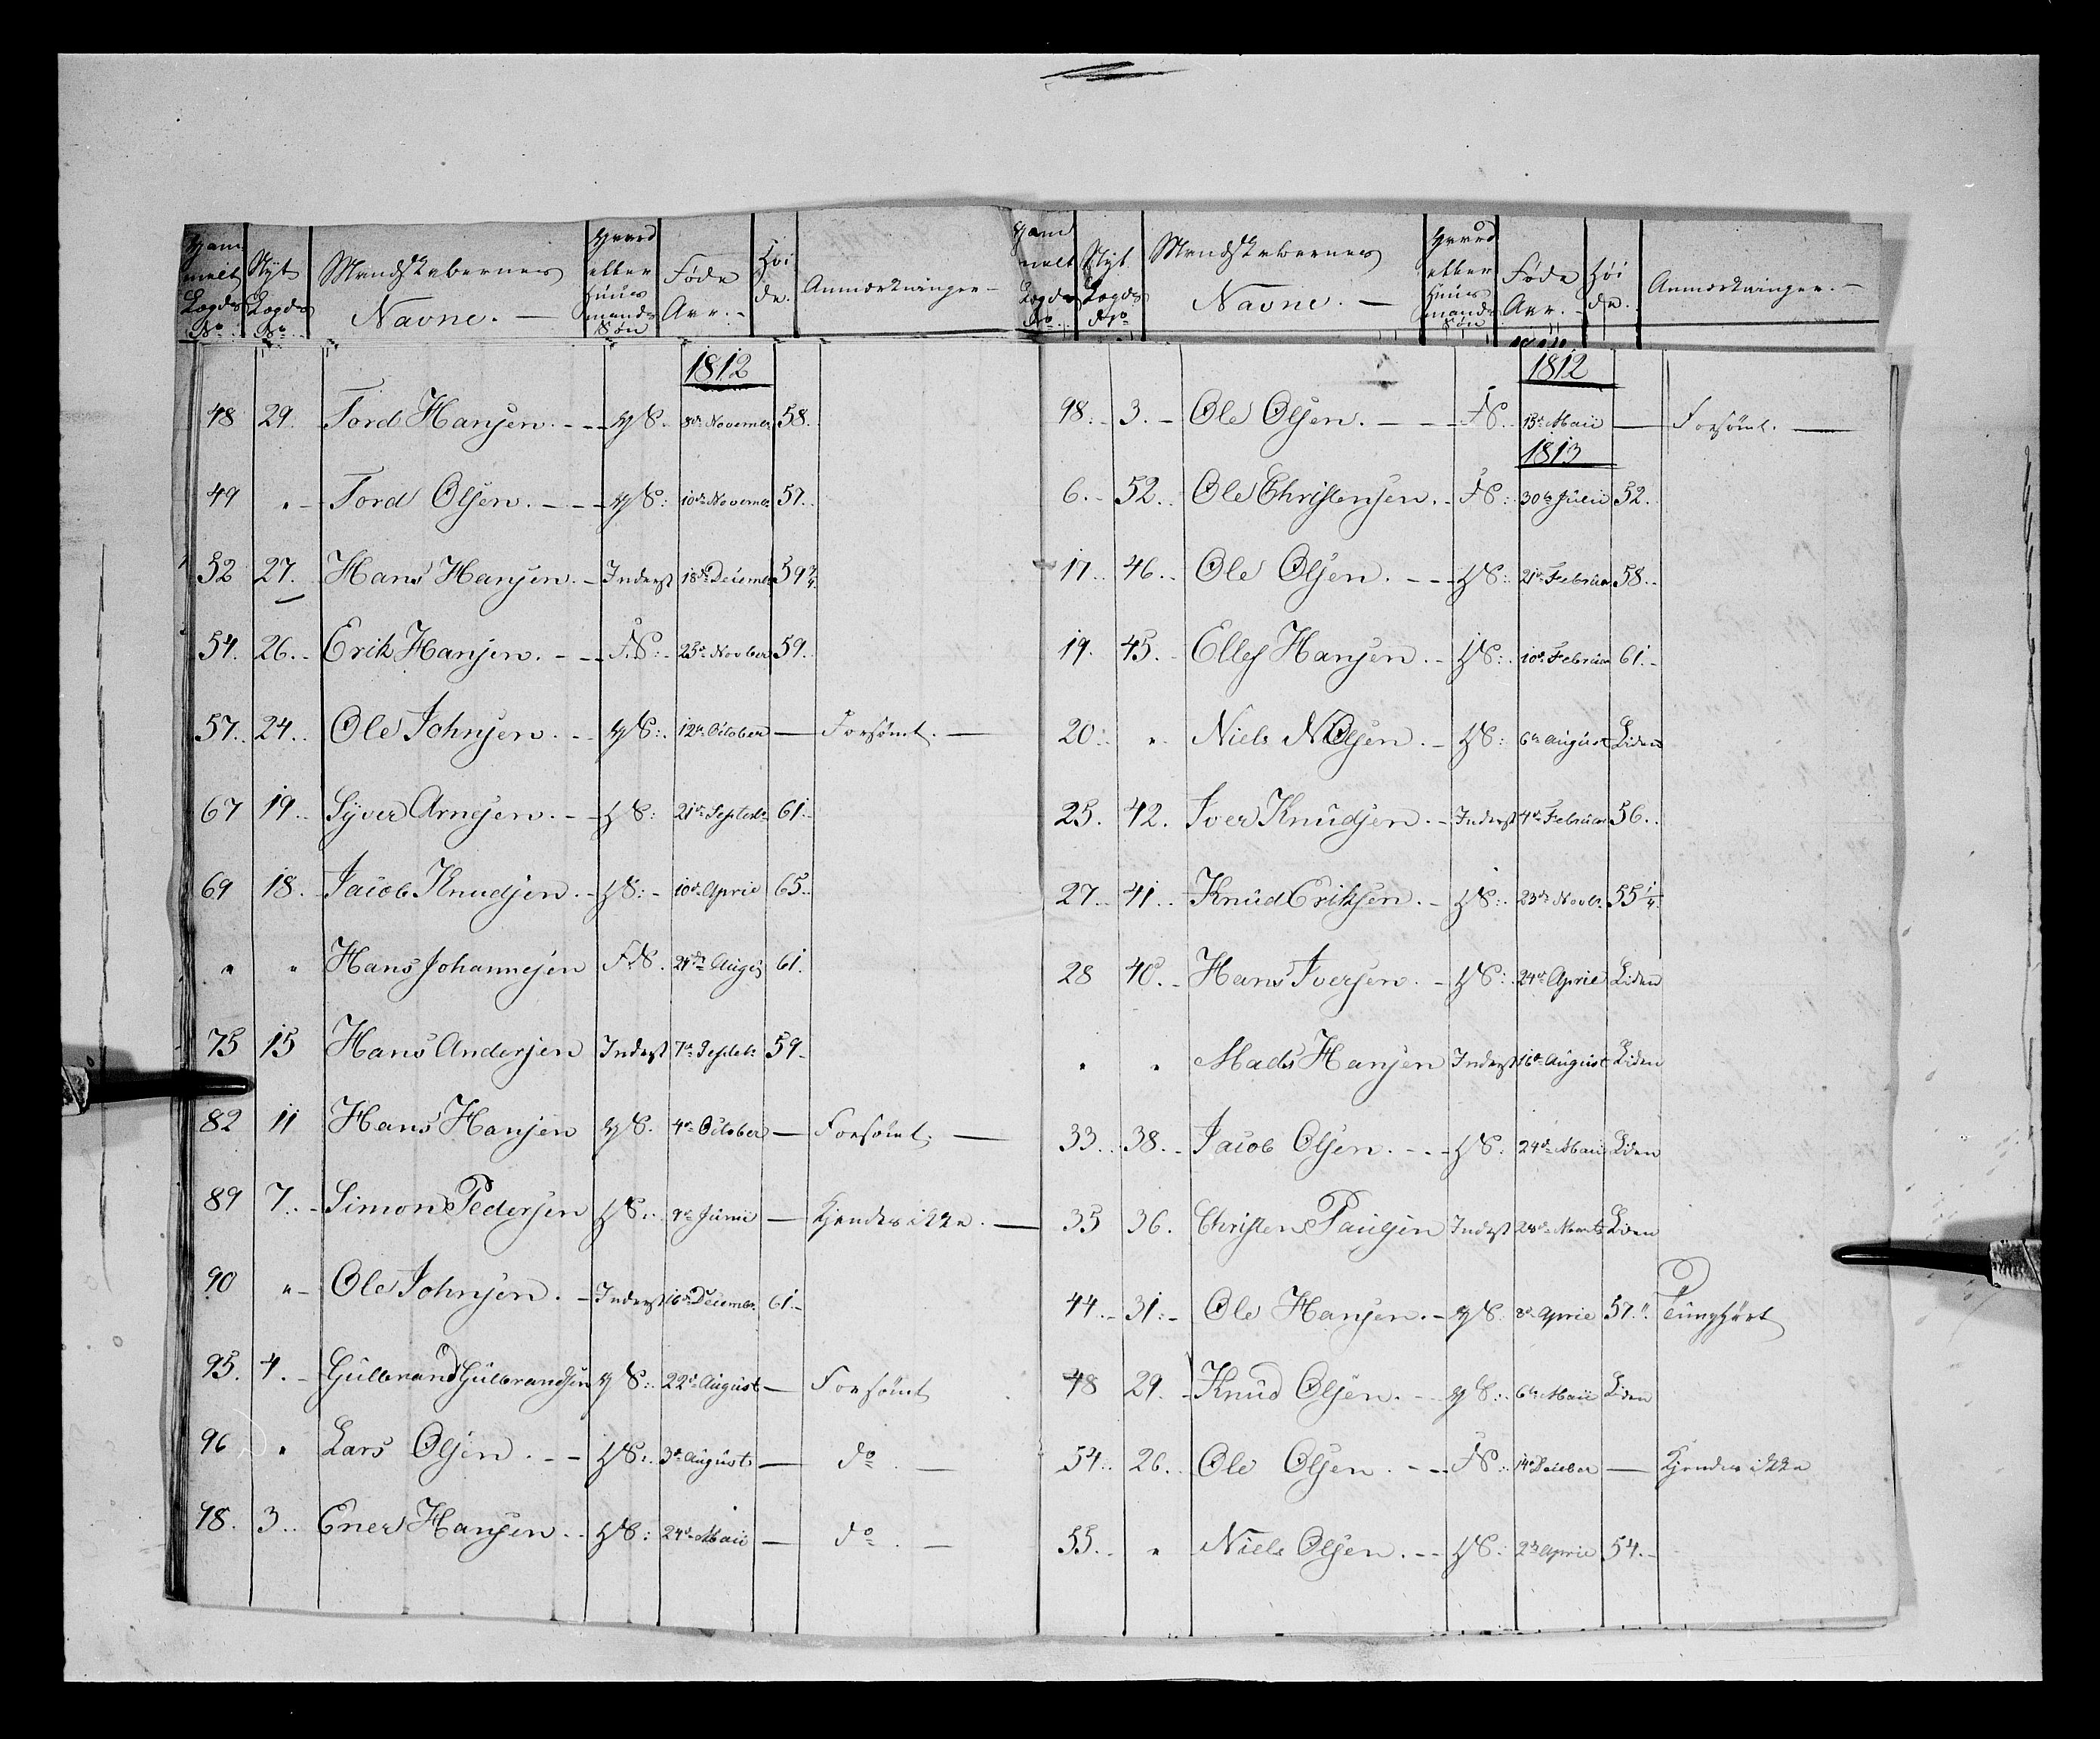 Gam melt Lægds No | Nyt Lægds No | Mandskabernes Navne. | Gaard eller Huus mands Søn | Føde Aar. | Høi de. | Anmærkninger
1812
48 29. Tord Hansen. G S. 8de Novembr 58.
49 " Tord Olsen. G S: 10de Novembr 57.
52 27. Hans Hansen. Inderst 18de Decembr 59 3/4
54. 26. Erik Hansen. F. S: 25de Novber 59.
57. 24. Ole Johnsen. G S: 12te October — Forsömt.
67 19. Syver Arnesen. H S: 21de Septebr 61.
69 18. Jacob Knudsen. H S: 10de April 65.
" " Hans Johannesen F. S. 21de Augs 61.
75 15 Hans Andersen Inderst 7de Septebr 59
82 11 Hans Hansen G S. 4de October — Forsömt.
89 7. Simon Pedersen H S: Junii — Kjendes ikke.
90 " Ole Johnsen. Inderst 16de Decembr 61.
95. 4. Gulbrand Gulbrandsen G S: 22de August — Forsömt
96 " Lars Olsen. H S: 3de August — do
98. 3. Ener Hansen H S: 24de Maii — do
Gam melt Lægds No | Nyt Lægds No | Mandskabernes Navne. | Gaard eller Huus mands Søn | Føde Aar. | Høi de. | Anmærkninger.
1812
98. 3. Ole Olsen. F S. 15de Maii — Forsömt.
1813
6. 52. Ole Christensen. F S: 30te Julii 52.
17. 46. Ole Olsen. H S: 21de Februar 58.
19. 45. Ellef Hansen. H S: 10de Februar 61.
20. " Niels Nilsen. H S: 6te August Liden
25. 42. Iver Knudsen. Inderst 4de Februar 56.
27. 41. Knud Eriksen. H S: 23de Novbr 55 1/4
28 40. Hans Iversen. H S: 24de April Liden
" " Mads Hansen Inderst 16de August Liden
33. 38. Jacob Olsen. H S: 24de Maii Liden
35 36. Christen Paulsen Inderst 28de Marts Liden
44. 31. Ole Hansen. G S: 8de April 57." Tunghørt
48 29. Knud Olsen. G S: 6te Maii Liden
54. 26. Ole Olsen. F S: 14de Decber — Kjendes ikke
55. " Niels Olsen. H S: 2de April 54.